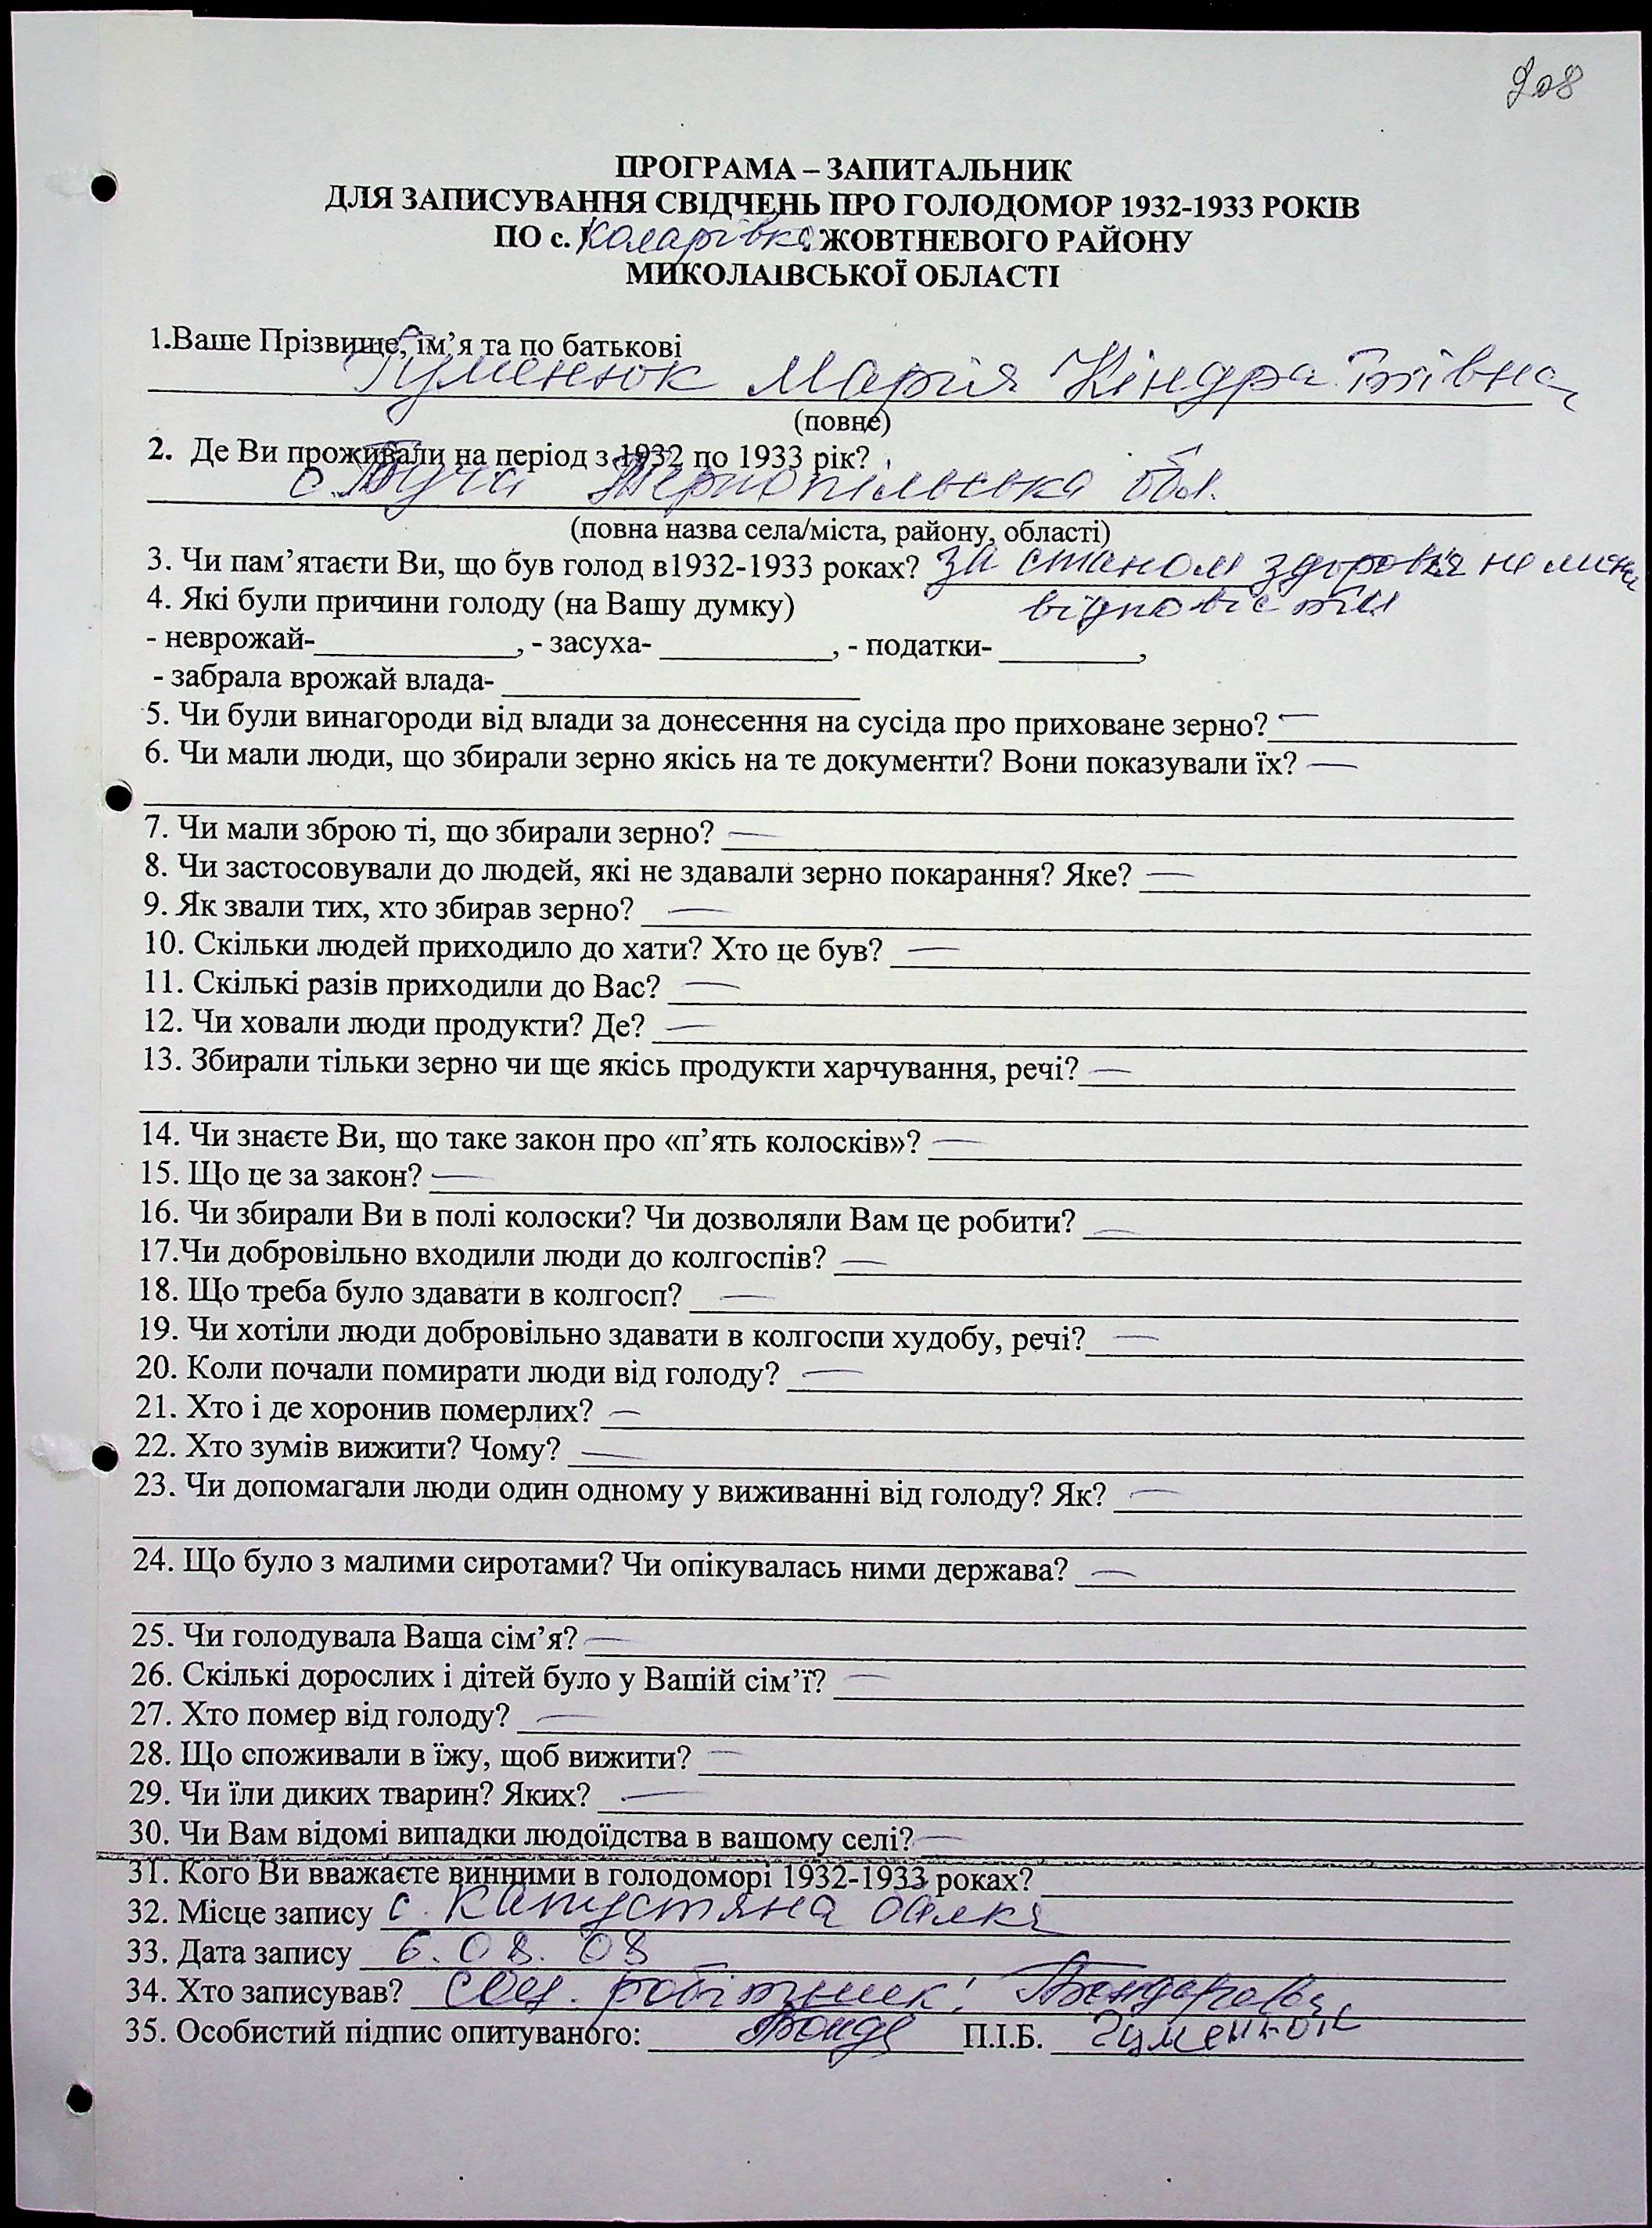 208
ПРОГРАМА – ЗАПИТАЛЬНИК
ДЛЯ ЗАПИСУВАННЯ СВІДЧЕНЬ ПРО ГОЛОДОМОР 1932-1933 РОКІВ
ПО с. Коларівка ЖОВТНЕВОГО РАЙОНУ
МИКОЛАІВСЬКОЇ ОБЛАСТІ
1.Ваше Прізвище, ім’я та по батькові
Гуменюк Марія Кіндратівна
(повне)
2. Де Ви проживали на період з 1932 по 1933 рік?
с. Буча Тернопільська обл.
(повна назва села/міста, району, області)
3. Чи пам’ятаєти Ви, що був голод в1932-1933 роках? за станом здоров'я не може
4. Які були причини голоду (на Вашу думку) відповісти
- неврожай-____________, - засуха- __________, - податки- ________,
- забрала врожай влада- ____________________
5. Чи були винагороди від влади за донесення на сусіда про приховане зерно? —
6. Чи мали люди, що збирали зерно якісь на те документи? Вони показували їх? —
7. Чи мали зброю ті, що збирали зерно? —
8. Чи застосовували до людей, які не здавали зерно покарання? Яке? —
9. Як звали тих, хто збирав зерно? —
10. Скільки людей приходило до хати? Хто це був? —
11. Скількі разів приходили до Вас? —
12. Чи ховали люди продукти? Де? —
13. Збирали тільки зерно чи ще якісь продукти харчування, речі? —
14. Чи знаєте Ви, що таке закон про «п’ять колосків»? —
15. Що це за закон? —
16. Чи збирали Ви в полі колоски? Чи дозволяли Вам це робити? —
17.Чи добровільно входили люди до колгоспів? —
18. Що треба було здавати в колгосп? —
19. Чи хотіли люди добровільно здавати в колгоспи худобу, речі? —
20. Коли почали помирати люди від голоду? —
21. Хто і де хоронив померлих? —
22. Хто зумів вижити? Чому? —
23. Чи допомагали люди один одному у виживанні від голоду? Як? —
24. Що було з малими сиротами? Чи опікувалась ними держава? —
25. Чи голодувала Ваша сім’я? —
26. Скількі дорослих і дітей було у Вашій сім’ї? —
27. Хто помер від голоду? —
28. Що споживали в їжу, щоб вижити? —
29. Чи їли диких тварин? Яких? —
30. Чи Вам відомі випадки людоїдства в вашому селі? —
31. Кого Ви вважаєте винними в голодоморі 1932-1933 роках?
32. Місце запису с. Капустяна балка
33. Дата запису 6.08.08
34. Хто записував? соц. робітник
35. Особистий підпис опитуваного: П.І.Б. Гуменюк